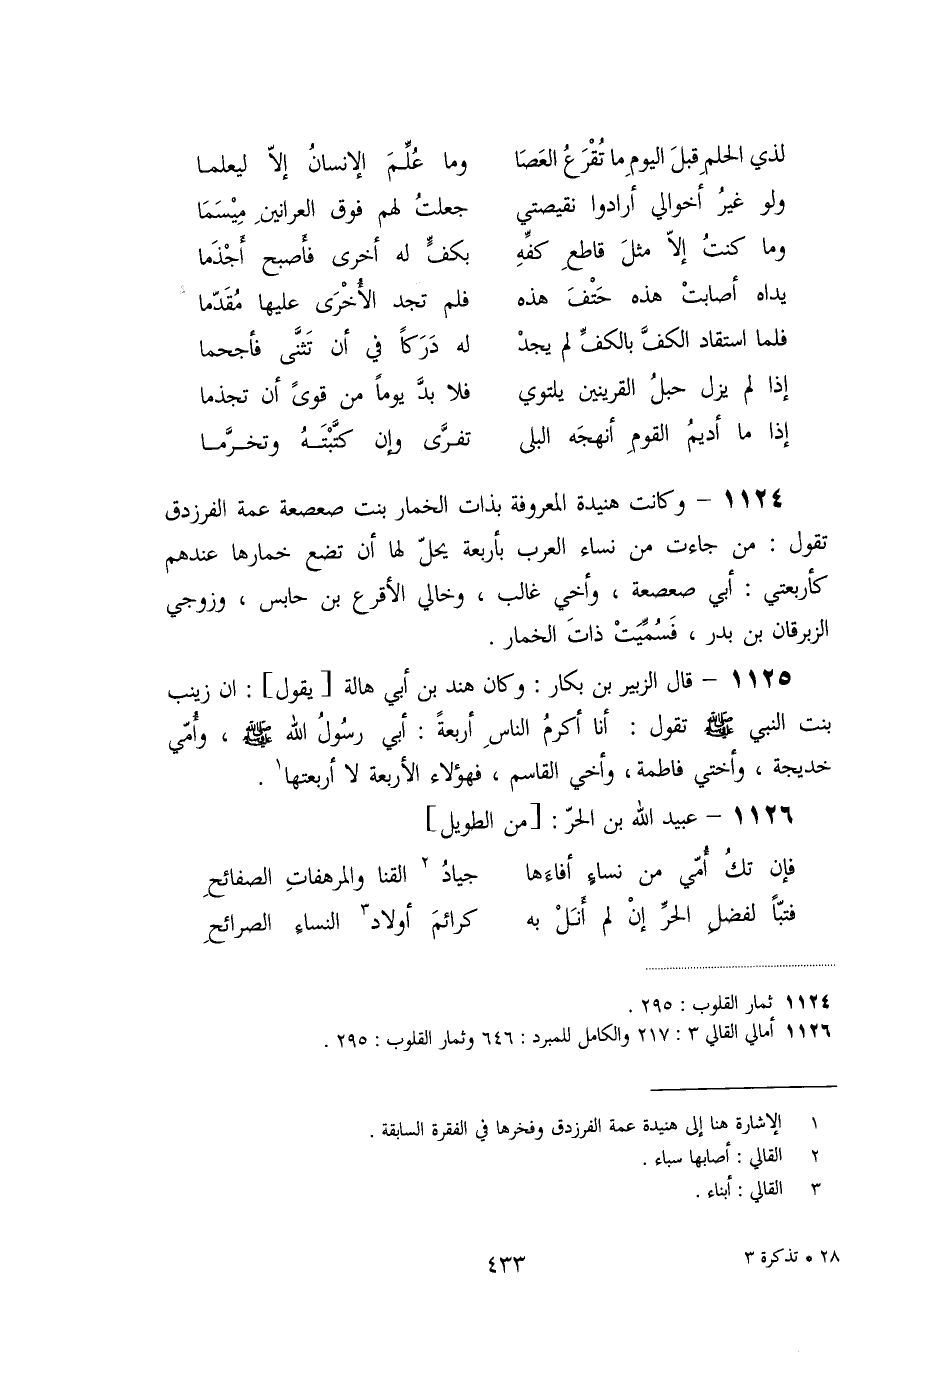 لذي الحلمِ قبلَ اليومِ ما تُقْرَعُ العَصَا وما عُلِّمَ الإنسانُ إلاّ ليعلما
ولو غيرُ أخوالي أرادوا نقيصتي جعلتُ لهم فوق العرانينِ مِيْسَمَا
وما كنتُ إلاّ مثلَ قاطعِ كفِّهِ بكفٍّ له أخرى فأصبح أَجْذَما
يداه أصابتْ هذه حَتْفَ هذه فلم تجد الأُخْرَى عليها مُقَدّما
فلما استقاد الكفَّ بالكفِّ لم يجدْ له دَرَكاً في أن تَثنَّى فأجحما
إذا لم يزل حبلُ القرينين يلتوي فلا بدَّ يوماً من قوىً أن تجذما
إذا ما أديمُ القومِ أنهجَه البلى تفرَّى وإن كتَّبْتَهُ وتخرَّما
١١٢٤ – وكانت هنيدة المعروفة بذات الخمار بنت صعصعة عمة الفرزدق
تقول : من جاءت من نساء العرب بأربعة يحلّ لها أن تضع خمارها عندهم
كأربعتي : أبي صعصعة ، وأخي غالب ، وخالي الأقرع بن حابس ، وزوجي
الزبرقان بن بدر ، فَسُمِّيَتْ ذاتَ الخمار .
١١٢٥ – قال الزبير بن بكار : وكان هند بن أبي هالة [ يقول ] : ان زينب
بنت النبي ﷺ تقول : أنا أكرمُ الناسِ أربعةً : أبي رسُولُ الله ﷺ ، وأُمّي
خديجة ، وأختي فاطمة ، وأخي القاسم ، فهؤلاء الأربعة لا أربعتها١ .
١١٢٦ – عبيد الله بن الحرّ : [من الطويل]
فإن تكُ أُمّي من نساءٍ أفاءَها جيادُ٢ القنا والمرهفاتِ الصفائحِ
فتبّاً لفضلِ الحرِّ إنْ لم أَنَلْ به كرائمَ أولاد٣ النساءِ الصرائحِ
١١٢٤ ثمار القلوب : ٢٩٥ .
١١٢٦ أمالي القالي ٣ : ٢١٧ والكامل للمبرد : ٦٤٦ وثمار القلوب : ٢٩٥ .
١ الإشارة هنا إلى هنيدة عمة الفرزدق وفخرها في الفقرة السابقة .
٢ القالي : أصابها سباء .
٣ القالي : أبناء .
٢٨ • تذكرة ٣
٤٣٣